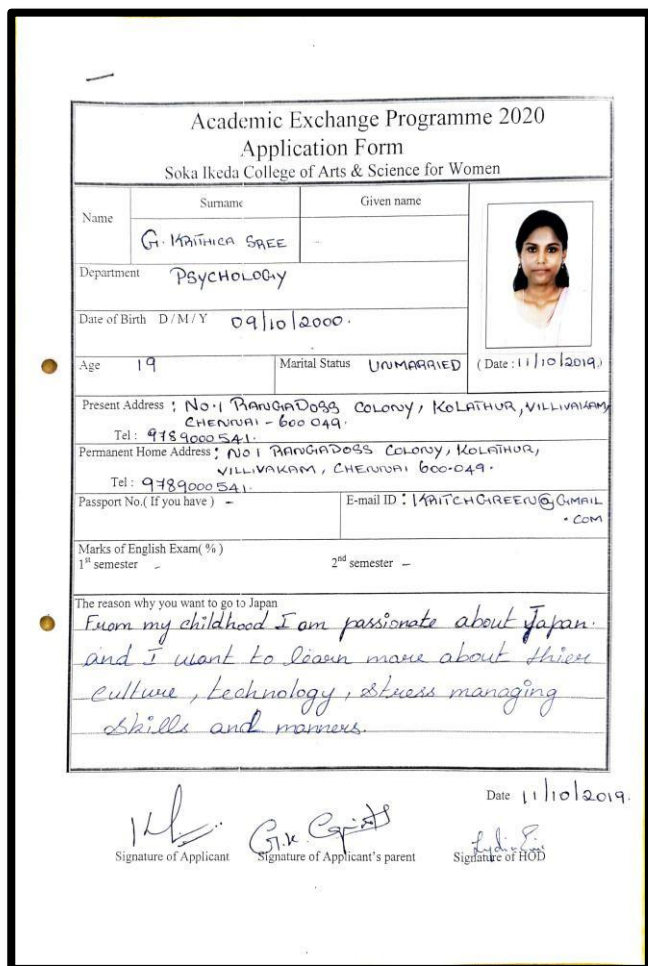 Academic Exchange Programme 2020
Application Form
Soka Ikeda College of Arts & Science for Women
Name
Surname
Given name
G. KRITHICA SREE
-
Department PSYCHOLOGY
Date of Birth D / M / Y 09/10/2000.
Age 19
Marital Status UNMARRIED
( Date : 11/10/2019.)
Present Address : NO.1 RANGADOSS COLONY, KOLATHUR, VILLIVAKAM,
CHENNAI - 600 049.
Tel : 9789000541.
Permanent Home Address : NO 1 RANGADOSS COLONY, KOLATHUR,
VILLIVAKAM, CHENNAI 600-049.
Tel : 9789000541.
Passport No.( If you have ) -
E-mail ID : KRITCHGREEN@GMAIL
.COM
Marks of English Exam( % )
1st semester -
2nd semester -
The reason why you want to go to Japan
From my childhood I am passionate about Japan.
and I want to learn more about thier
culture, technology, stress managing
skills and manners.
Date 11/10/2019.
Signature of Applicant
Signature of Applicant's parent
Signature of HOD